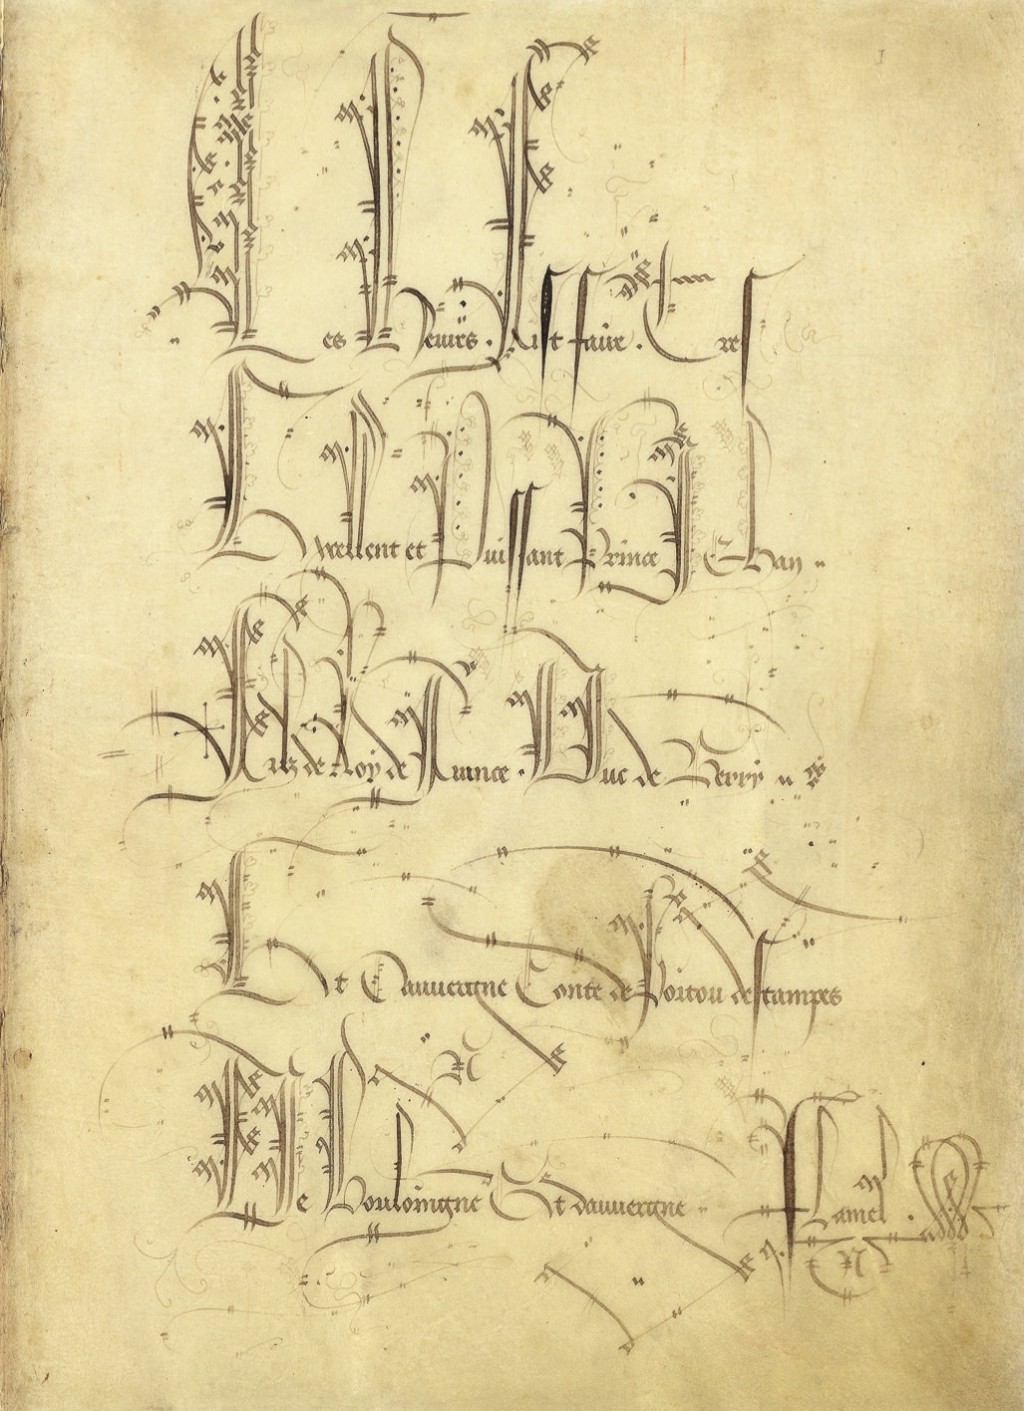 Ces Heures. Fist faire. Tres
Excellent et Puissant Prince Jehan
Filz de Roy de France. Duc de Berry
Et Dauuergne Conte de Poitou destampes
De Bouloingne Et dauuergne Flamel.